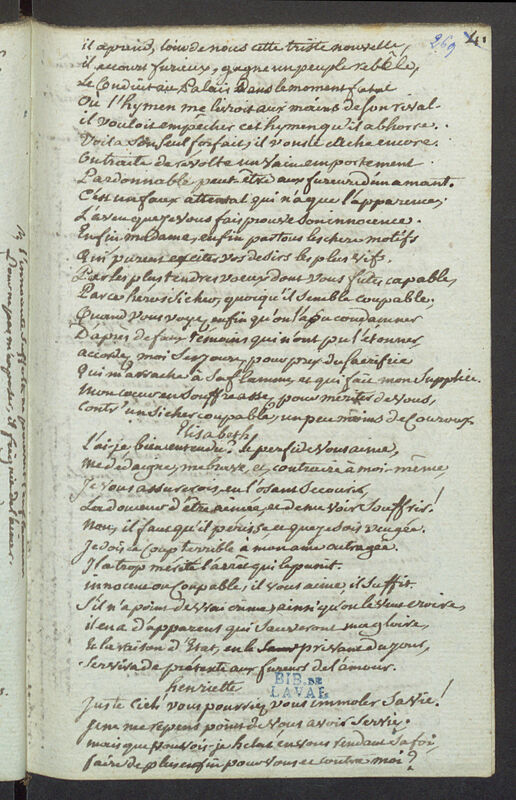 269
il aprend, loin de nous cette triste nouvelle,
il accourt furieux, gagne un peuple rebelle,
Le Conduit au Palais dans le moment fatal
Ou l'hymen me livroit aux mains de son rival
il vouloit empêcher cet hymen qu'il abhorre.
Voila son seul forfait, il vous le cache encore.
On traite de revolte un vain emportement
Pardonnable peut-être aux fureurs d'un amant.
C'est un faux attentat qui n'a que l'apparence;
L'aveu que je vous fais prouve son innocence.
Enfin madame, enfin par tous les chers motifs
Qui purent exciter vos desirs les plus vifs,
Par les plus tendres voeux dont vous futes capable,
Par ce héros si cher, quoiqu'il semble coupable,
Quand vous voyez enfin qu'on l'a pu condamner
D'apres de faux témoins qui n'ont pu l'etonner
accordez moi ses jours, pour prix du sacrifice
Qui m'arrache à sa flamme, et qui fait mon Supplice.
Mon coeur en souffre assez, pour meriter de vous,
Contre un si cher coupable, un peu moins de Couroux
Elisabeth
L'ai-je bien entendu? le perfide vous aime,
Me dédaigne, me brave, et, contraire à moi-même,
Je vous assurerois, en l'osant secourir,
La douceur d'être aimée, et de me voir souffrir!
Non, il faut qu'il perisse, et que je sois vengée.
Je dois ce coup terrible à mon ame outragée.
Il a trop mérité l'arrêt qui le punit.
innocent ou Coupable, il vous aime, il suffit.
S'il n'a point de vrai crime, ainsi qu'on le veut croire,
il en a d'apparens qui sauveront ma gloire,
Et la raison d'Etat, en le privant du jour,
Servira de prétexte aux fureurs de l'amour.
henriette
Juste Ciel! vous pourriez vous immoler Sa vie!
Je ne me repens point de vous avoir Servie;
mais que pouvois-je helas! en vous rendant sa foi,
faire de plus enfin pour vous et contre moi?
BIB. DE
LAVAL